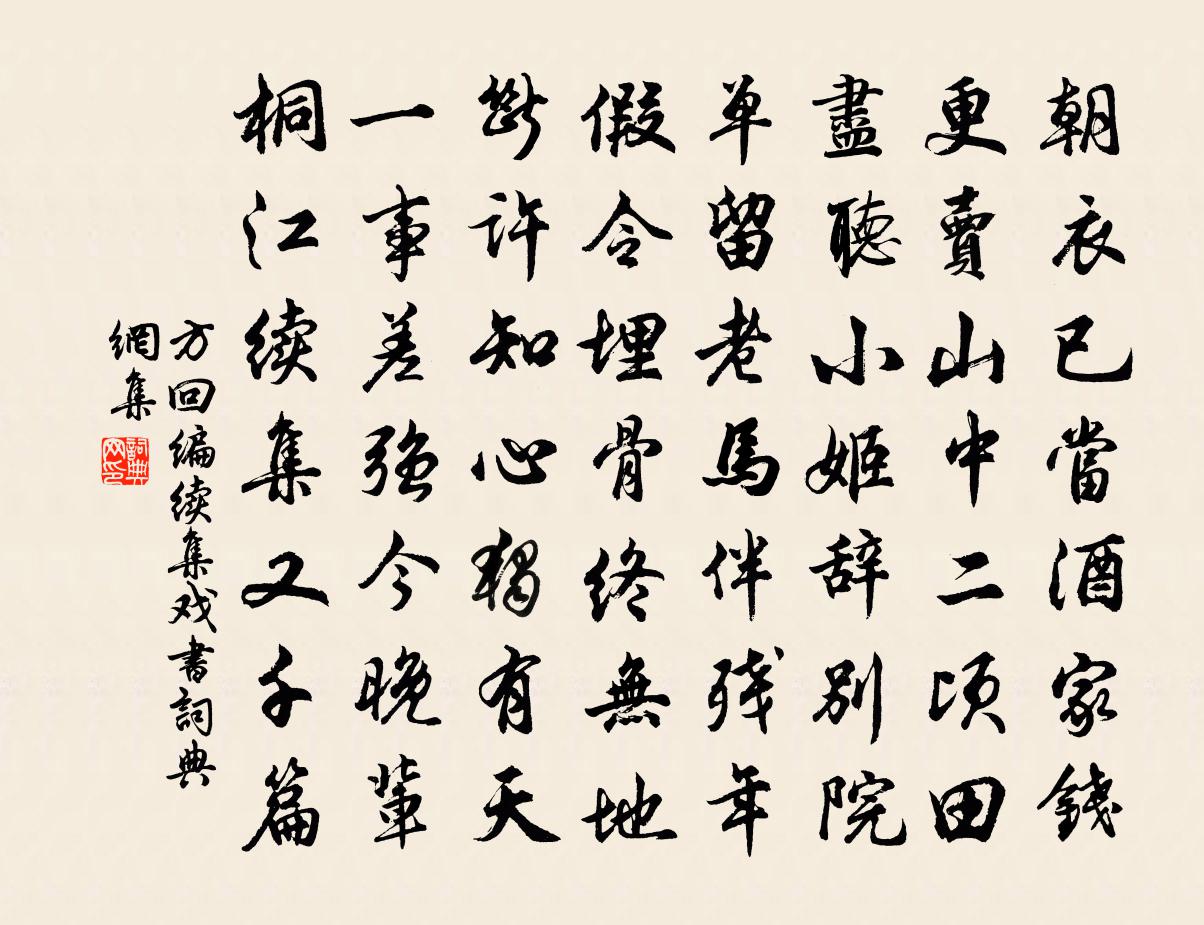 朝衣已當酒家錢
更賣山中二頃田
盡聽小姬辞別院
单留老馬伴残年
假令埋骨終無地
斷許知心獨有天
一事差强今晚輩
桐江续集又千篇
方回編续集戏書詞典
網集
詞典
网印